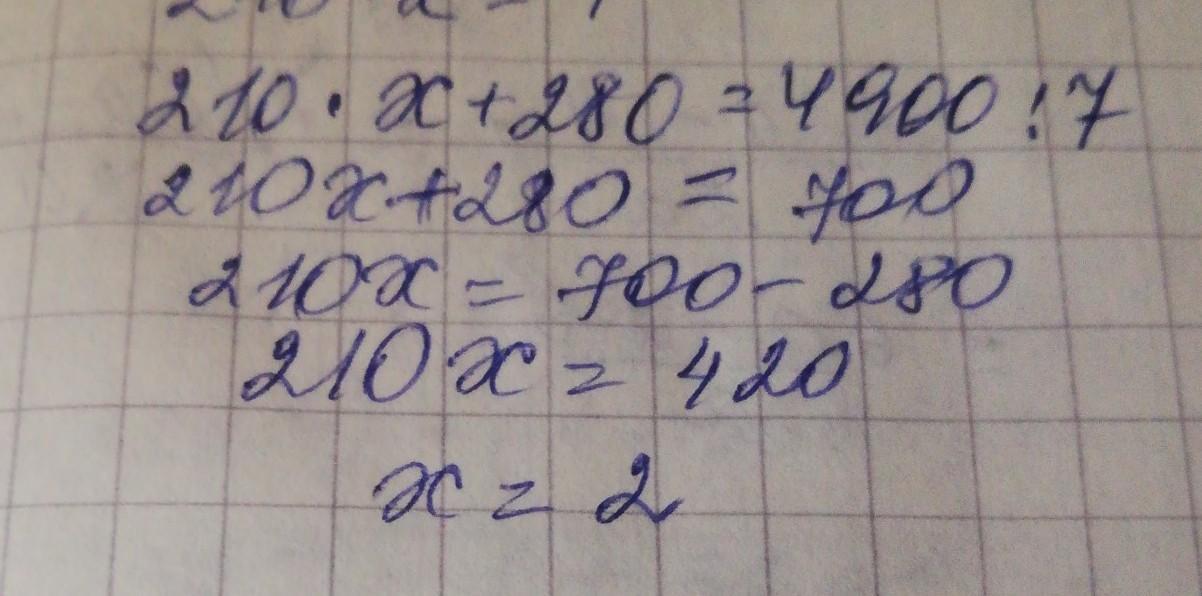 210 · x + 280 = 4900 : 7
210x + 280 = 700
210x = 700 - 280
210x = 420
x = 2